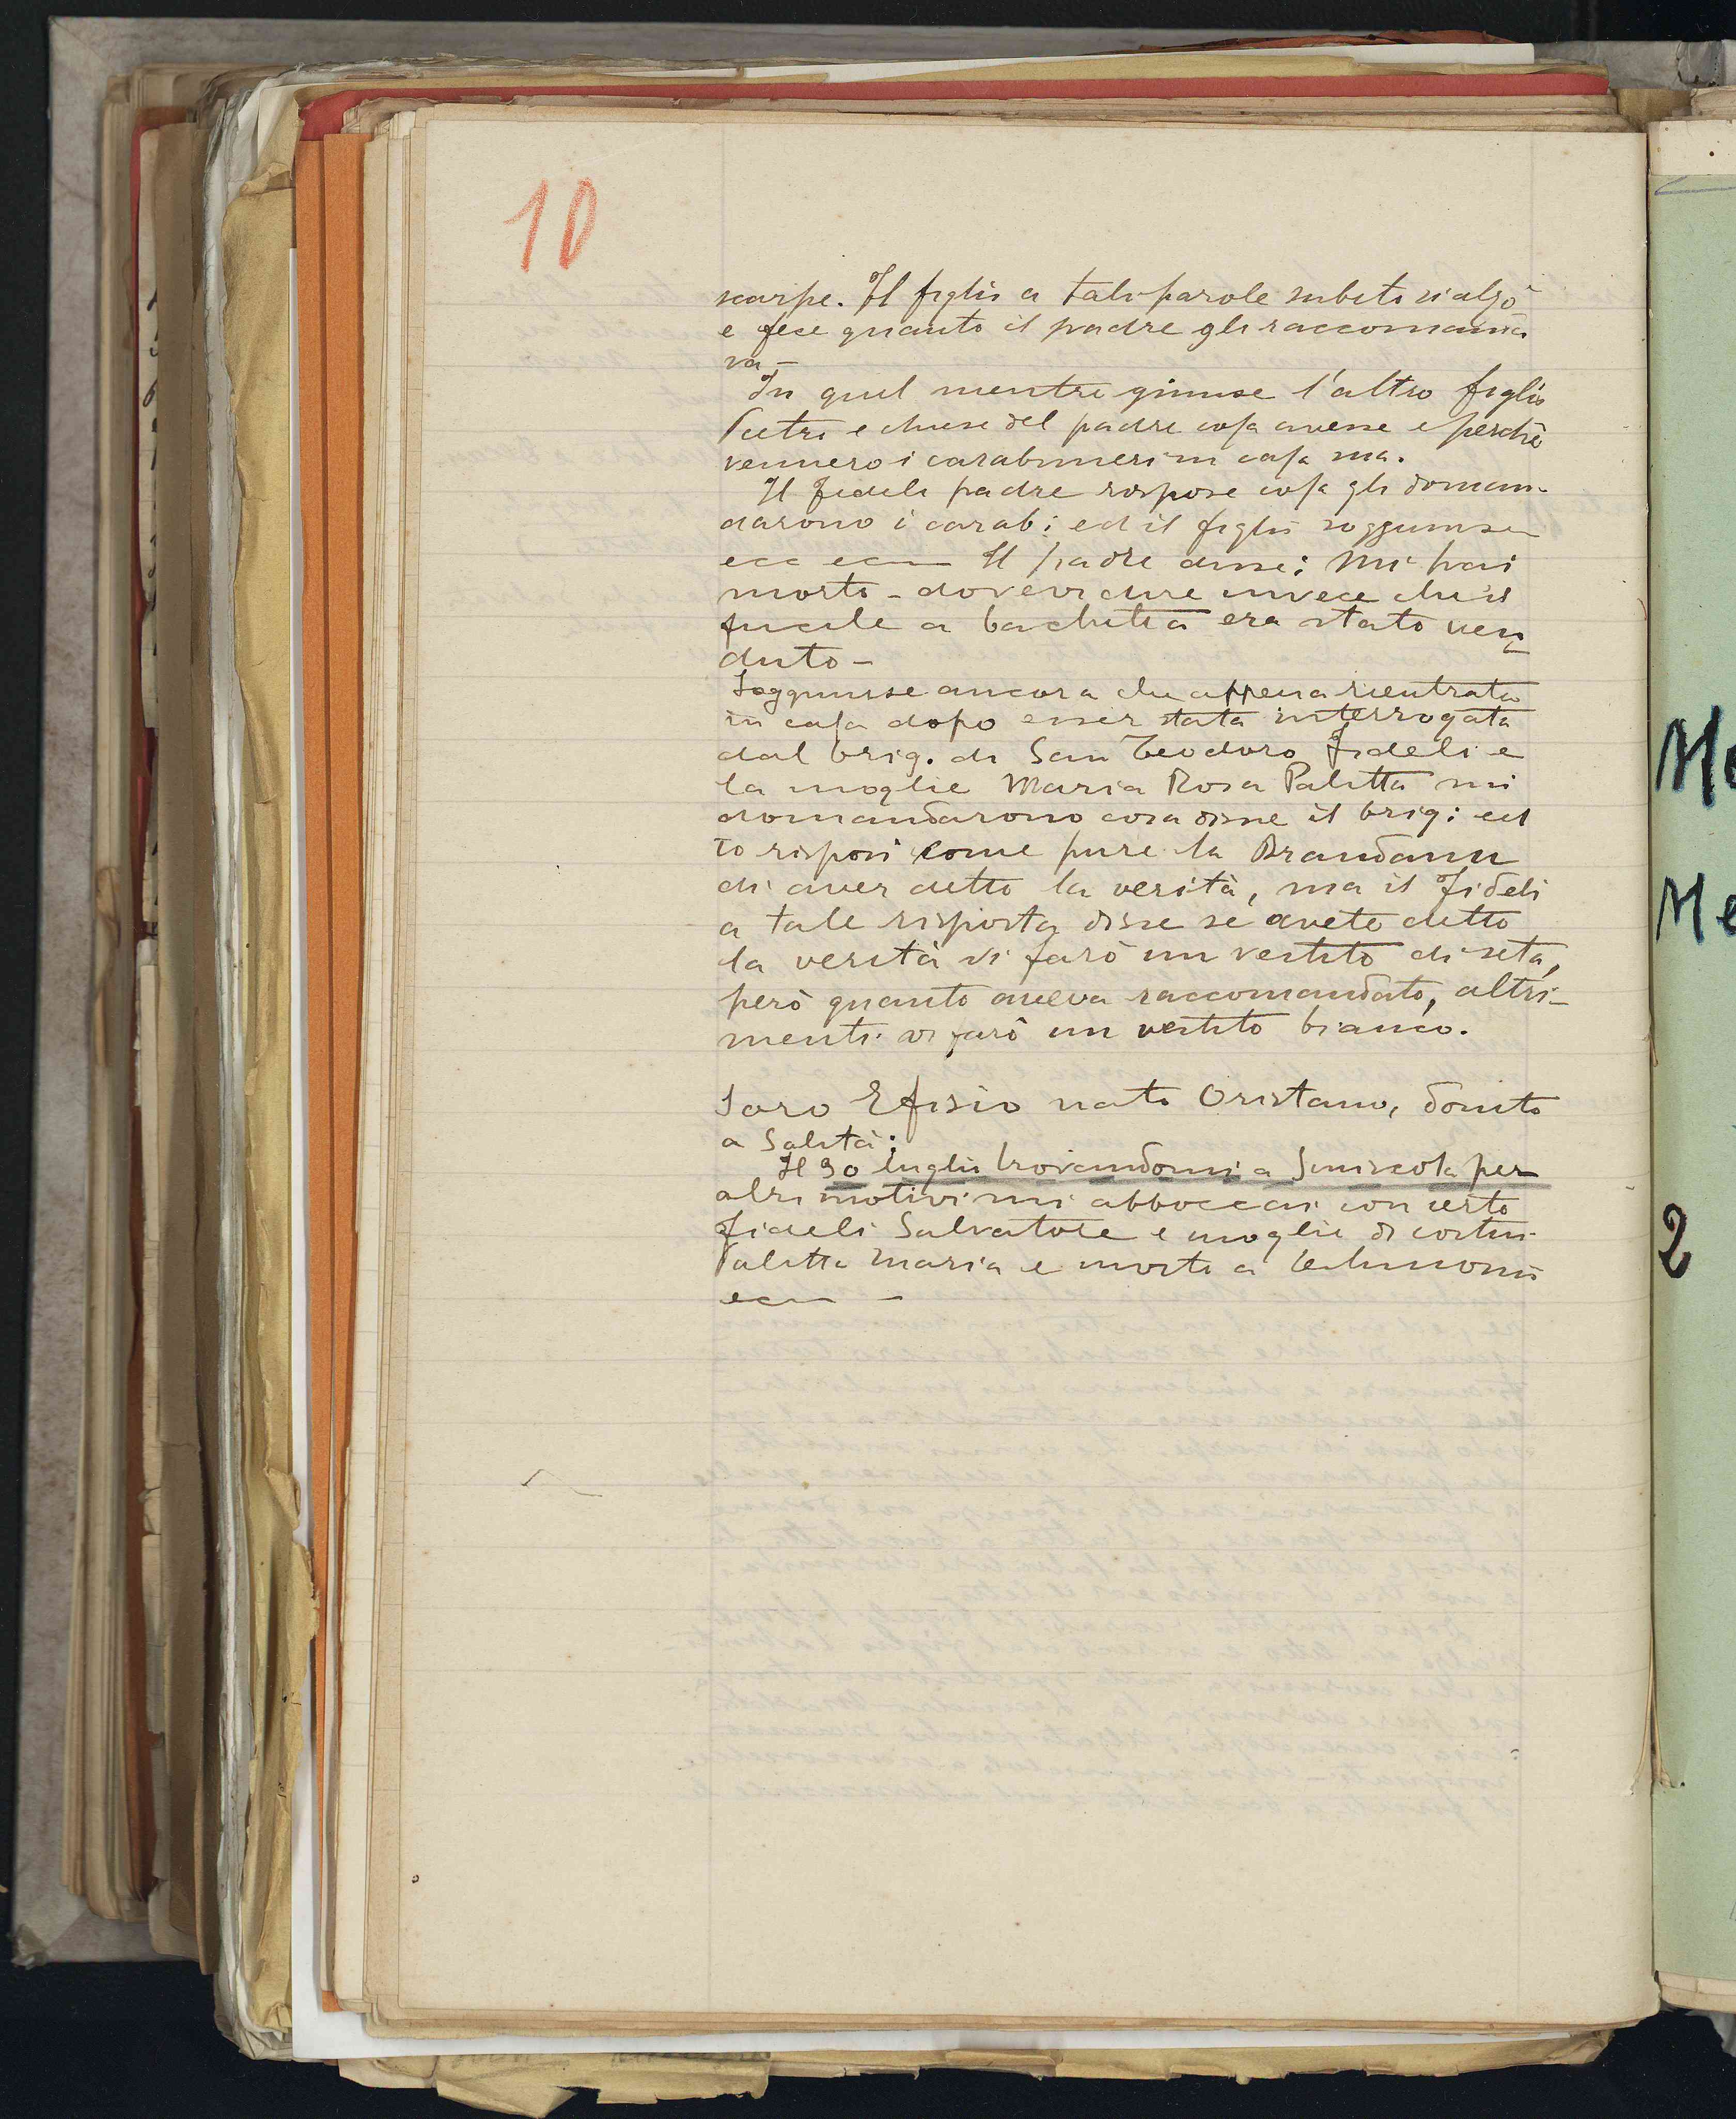 10
scarpe. Il figlio a tali parole subito si alzò
e fece quanto il padre gli raccomanda
va –
In quel mentre giunse l'altro figlio
Pietro e chiese del padre cosa avesse e perchè
vennero i carabinieri in casa sua.
Il Fideli padre rispose cosa gli doman-
darono i carab: ed il figlio soggiunse
ecc ecc Il padre disse: Mi hai
morto – dovevi dire invece che il
fucile a bachetta era stato ven
duto –
Soggiunse ancora che appena rientrata
in casa dopo esser stata interrogata
dal brig. di San Teodoro Fideli e
la moglie Maria Rosa Palitta mi
domandarono cosa disse il brig: ed
io risposi come pure la Brandanu
di aver detto la verità, ma il Fideli
a tale risposta disse se avete detto
la verità vi farò un vestito di seta,
però quanto aveva raccomandato, altri-
menti vi farò un vestito bianco.
Soro Efisio nato Oristano, domto
a Salità:
Il 30 luglio trovandomi a Siniscola per
altri motivi mi abboccai con certo
Fideli Salvatore e moglie di costui
Palitta Maria e morti a testimoni
ecc –
Me
Me
2